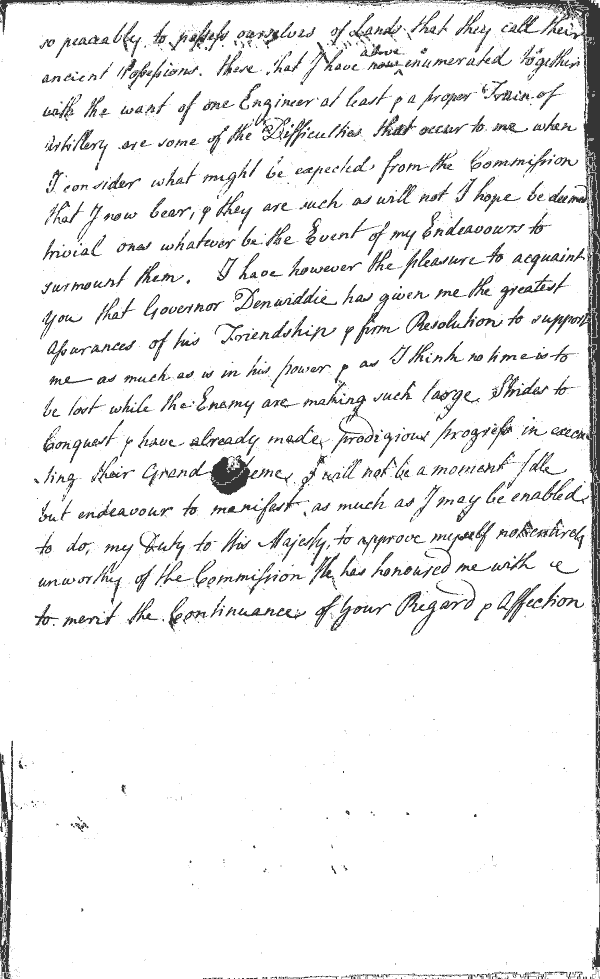 so peaceably to possess ourselves of Lands that they call their
ancient Possessions. these that I have now above enumerated together
with the want of one Engineer at least & a proper Train of
Artillery are some of the Difficulties that occur to me when
I consider what might be expected from the Commission
that I now bear, & they are such as will not I hope be deemed
trivial ones whatever be the Event of my Endeavours to
surmount them. I have however the pleasure to acquaint
you that Governor Denwiddie has given me the greatest
Assurances of his Friendship & firm Resolution to support
me as much as is in his power & as I think no time is to
be lost while the Enemy are making such large Strides to
Conquest & have already made prodigious progress in execu
ting their Grand eme, I will not be a moment Idle
but endeavour to manifest, as much as I may be enabled
to do, my Duty to His Majesty, to approve myself not entirely
unworthy of the Commission He has honoured me with &
to merit the Continuance of Your Regard & Affection